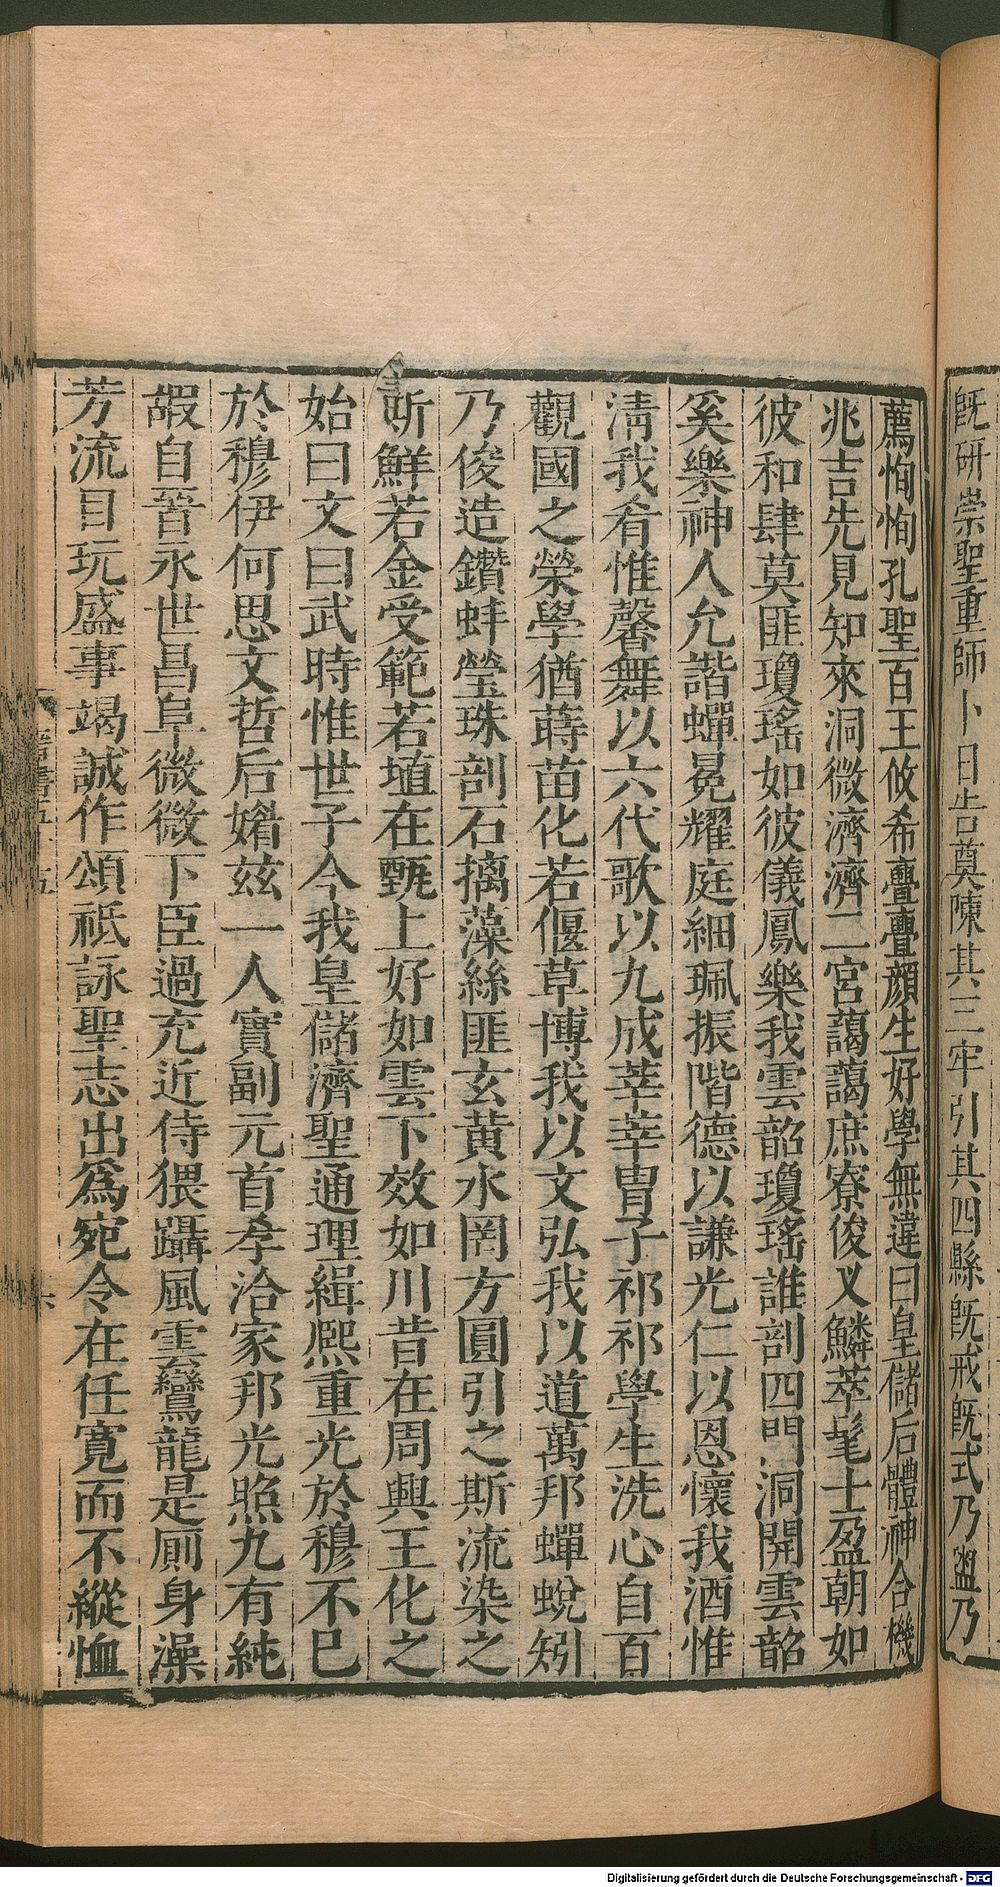 既研崇聖重師卜日告奠陳其三牢引其四縣既戒既式乃盥乃
薦恂恂孔聖百王攸希亹亹顏生好學無違曰皇儲后體神合機
兆吉先見知來洞微濟濟二宮藹藹庶寮俊乂鱗萃髦士盈朝如
彼和肆莫匪瓊瑤如彼儀鳳樂我雲韶瓊瑤誰剖四門洞開雲韶
奚樂神人允諧蟬冕耀庭細珮振階德以謙光仁以恩懷我酒惟
清我肴惟馨舞以六代歌以九成莘莘冑子祁祁學生洗心自百
觀國之榮學猶蒔苗化若偃草博我以文弘我以道萬邦蟬蛻矧
乃俊造鑽蚌瑩珠剖石摛藻絲匪玄黃水罔方圓引之斯流染之
斯鮮若金受範若埴在甄上好如雲下效如川昔在周興王化之
始曰文曰武時惟世子今我皇儲濟聖通理緝熙重光於穆不已
於穆伊何思文哲后媚茲一人實副元首孝洽家邦光照九有純
嘏自晉永世昌阜微微下臣過充近侍猥躡風雲鸞龍是厠身澡
芳流目玩盛事竭誠作頌祗詠聖志出爲宛令在任寬而不縱恤
Digitalisierung gefördert durch die Deutsche Forschungsgemeinschaft - DFG